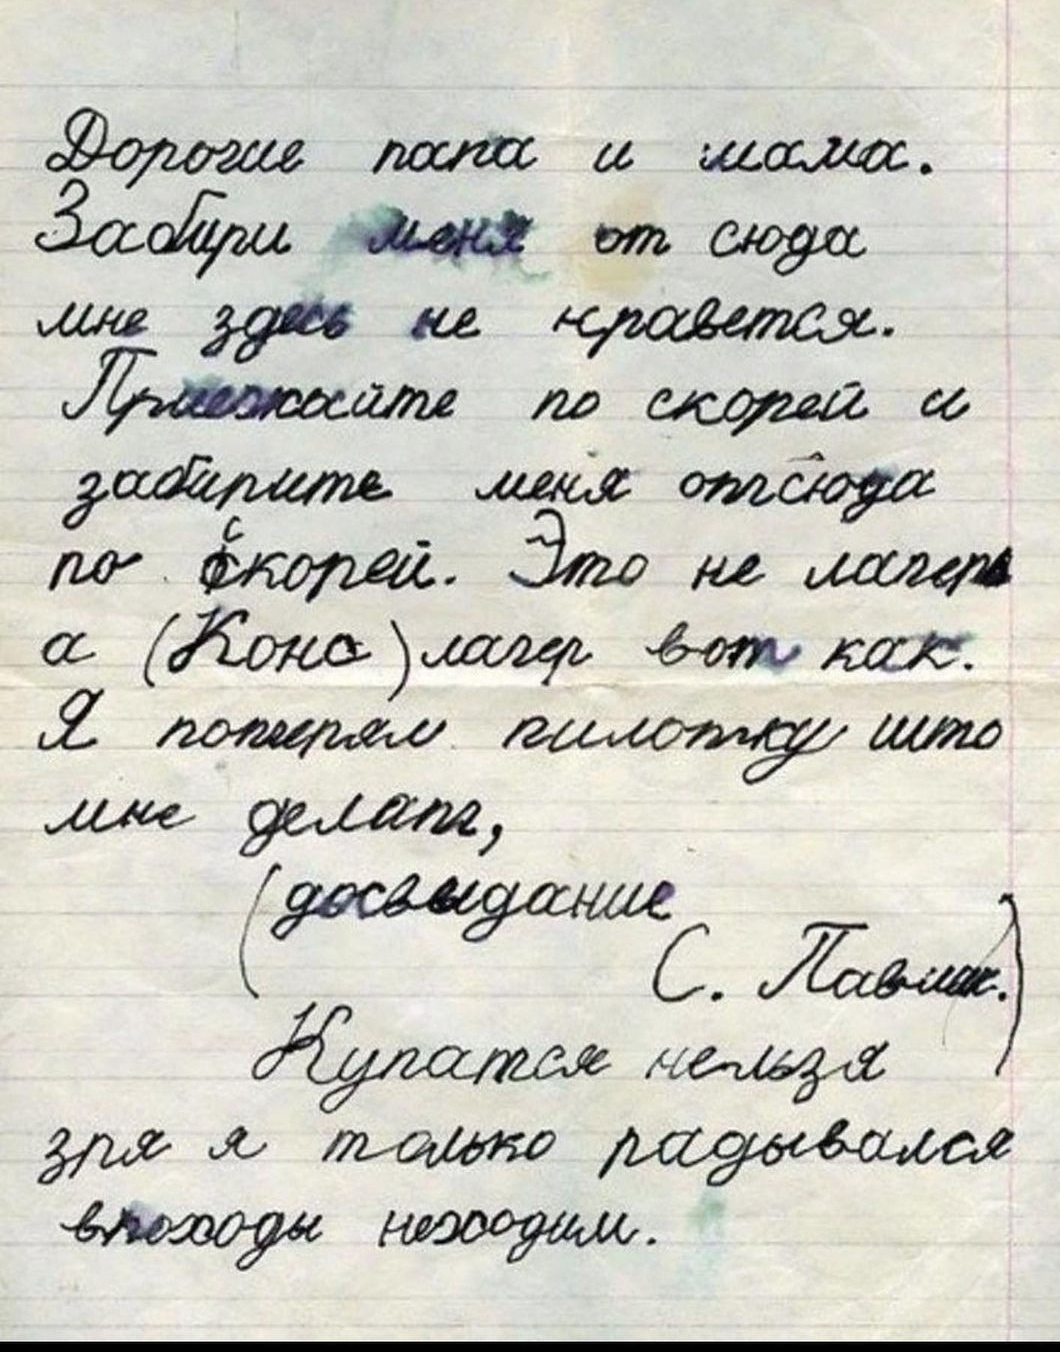 Дорогие папа и мама.
Забири меня от сюда
мне здесь не нравется.
Приезжайте по скорей и
забирите меня отсюда
по скорей. Это не лагерь
а (Конс) лагер вот как.
Я потерял пилотку што
мне делать,
(досвыдание
С. Павлик.)
Купатся нельзя
зря я только радывался
впоходы неходим.